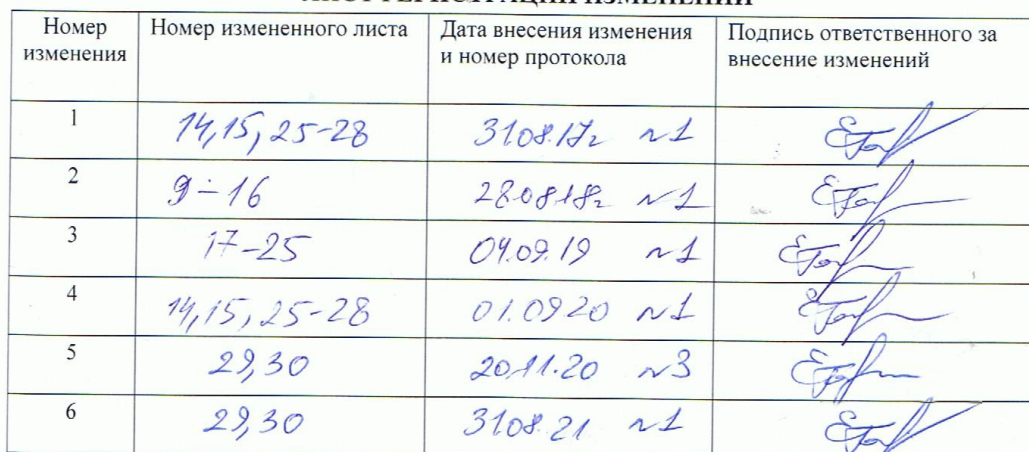 ЛИСТ РЕГИСТРАЦИИ ИЗМЕНЕНИЙ
Номер изменения Номер измененного листа Дата внесения изменения и номер протокола Подпись ответственного за внесение изменений
1 14,15,25-28 31.08.17г №1
2 9-16 28.08.18г №1
3 17-25 04.09.19 №1
4 14,15,25-28 01.09.20 №1
5 29,30 20.11.20 №3
6 29,30 31.08.21 №1